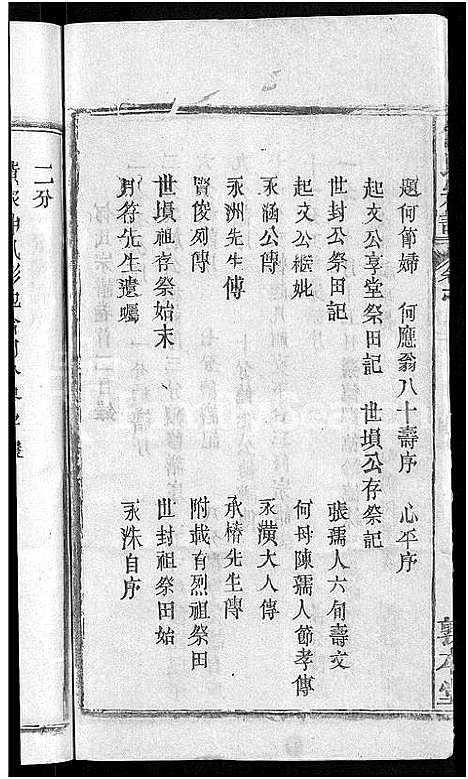 題何節婦　何應翁八十壽序　心平序
起文公享堂祭田記　世塤公存祭記
世封公祭田記　張孺人六旬壽文
起文公懨妣　何母陳孺人節孝傳
永涵公傳　永潢大人傳
永洲先生傳　承椿先生傳
賢俊列傳　附載有烈祖祭田
世塤祖存祭始末　世封祖祭田始
月符先生遺囑　永洙自序
二分
敦本堂